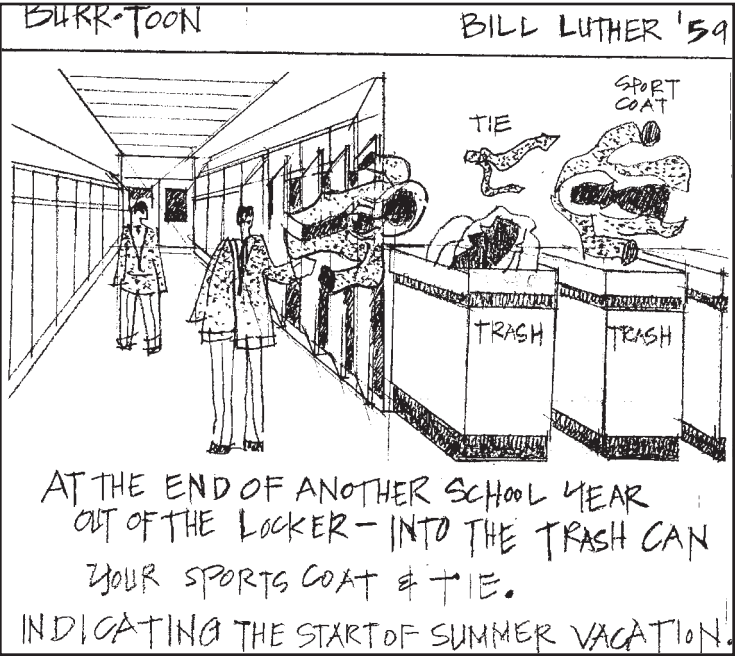 BURR·TOON
BILL LUTHER '59
SPORT
COAT
TIE
TRASH
TRASH
AT THE END OF ANOTHER SCHOOL YEAR
OUT OF THE LOCKER — INTO THE TRASH CAN
YOUR SPORTS COAT & TIE.
INDICATING THE START OF SUMMER VACATION.